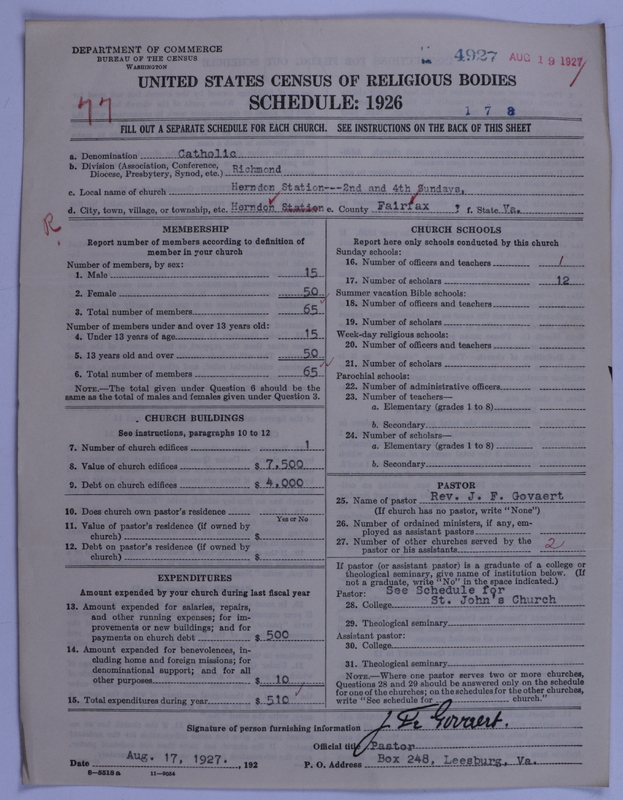 DEPARTMENT OF COMMERCE
BUREAU OF THE CENSUS
WASHINGTON
4927 AUG 19 1927
UNITED STATES CENSUS OF RELIGIOUS BODIES
SCHEDULE: 1926
77
1 7 8
FILL OUT A SEPARATE SCHEDULE FOR EACH CHURCH. SEE INSTRUCTIONS ON THE BACK OF THIS SHEET
a. Denomination Catholic
b. Division (Association, Conference, Diocese, Presbytery, Synod, etc.) Richmond
c. Local name of church Herndon Station---2nd and 4th Sundays,
d. City, town, village, or township, etc. Herndon Station e. County Fairfax, f. State Va.
R
MEMBERSHIP
Report number of members according to definition of
member in your church
Number of members, by sex:
1. Male 15
2. Female 50
3. Total number of members 65
Number of members under and over 13 years old:
4. Under 13 years of age 15
5. 13 years old and over 50
6. Total number of members 65
NOTE.—The total given under Question 6 should be the
same as the total of males and females given under Question 3.
CHURCH BUILDINGS
See instructions, paragraphs 10 to 12
7. Number of church edifices 1
8. Value of church edifices $ 7,500
9. Debt on church edifices $ 4,000
10. Does church own pastor's residence
Yes or No
11. Value of pastor's residence (if owned by
church) $
12. Debt on pastor's residence (if owned by
church) $
EXPENDITURES
Amount expended by your church during last fiscal year
13. Amount expended for salaries, repairs,
and other running expenses; for im-
provements or new buildings; and for
payments on church debt $ 500
14. Amount expended for benevolences, in-
cluding home and foreign missions; for
denominational support; and for all
other purposes $ 10
15. Total expenditures during year $ 510
CHURCH SCHOOLS
Report here only schools conducted by this church
Sunday schools:
16. Number of officers and teachers 1
17. Number of scholars 12
Summer vacation Bible schools:
18. Number of officers and teachers
19. Number of scholars
Week-day religious schools:
20. Number of officers and teachers
21. Number of scholars
Parochial schools:
22. Number of administrative officers
23. Number of teachers—
a. Elementary (grades 1 to 8)
b. Secondary
24. Number of scholars—
a. Elementary (grades 1 to 8)
b. Secondary
PASTOR
25. Name of pastor Rev. J. F. Govaert
(If church has no pastor, write "None")
26. Number of ordained ministers, if any, em-
ployed as assistant pastors
27. Number of other churches served by the
pastor or his assistants 2
If pastor (or assistant pastor) is a graduate of a college or
theological seminary, give name of institution below. (If
not a graduate, write "No" in the space indicated.)
Pastor: See Schedule for
28. College St. John's Church
29. Theological seminary
Assistant pastor:
30. College
31. Theological seminary
NOTE.—Where one pastor serves two or more churches,
Questions 28 and 29 should be answered only on the schedule
for one of the churches; on the schedules for the other churches,
write "See schedule for church."
Signature of person furnishing information J. F. Govaert.
Official title Pastor
Date Aug. 17, 1927. , 192 P. O. Address Box 248, Leesburg, Va.
8—5518a 11—9054